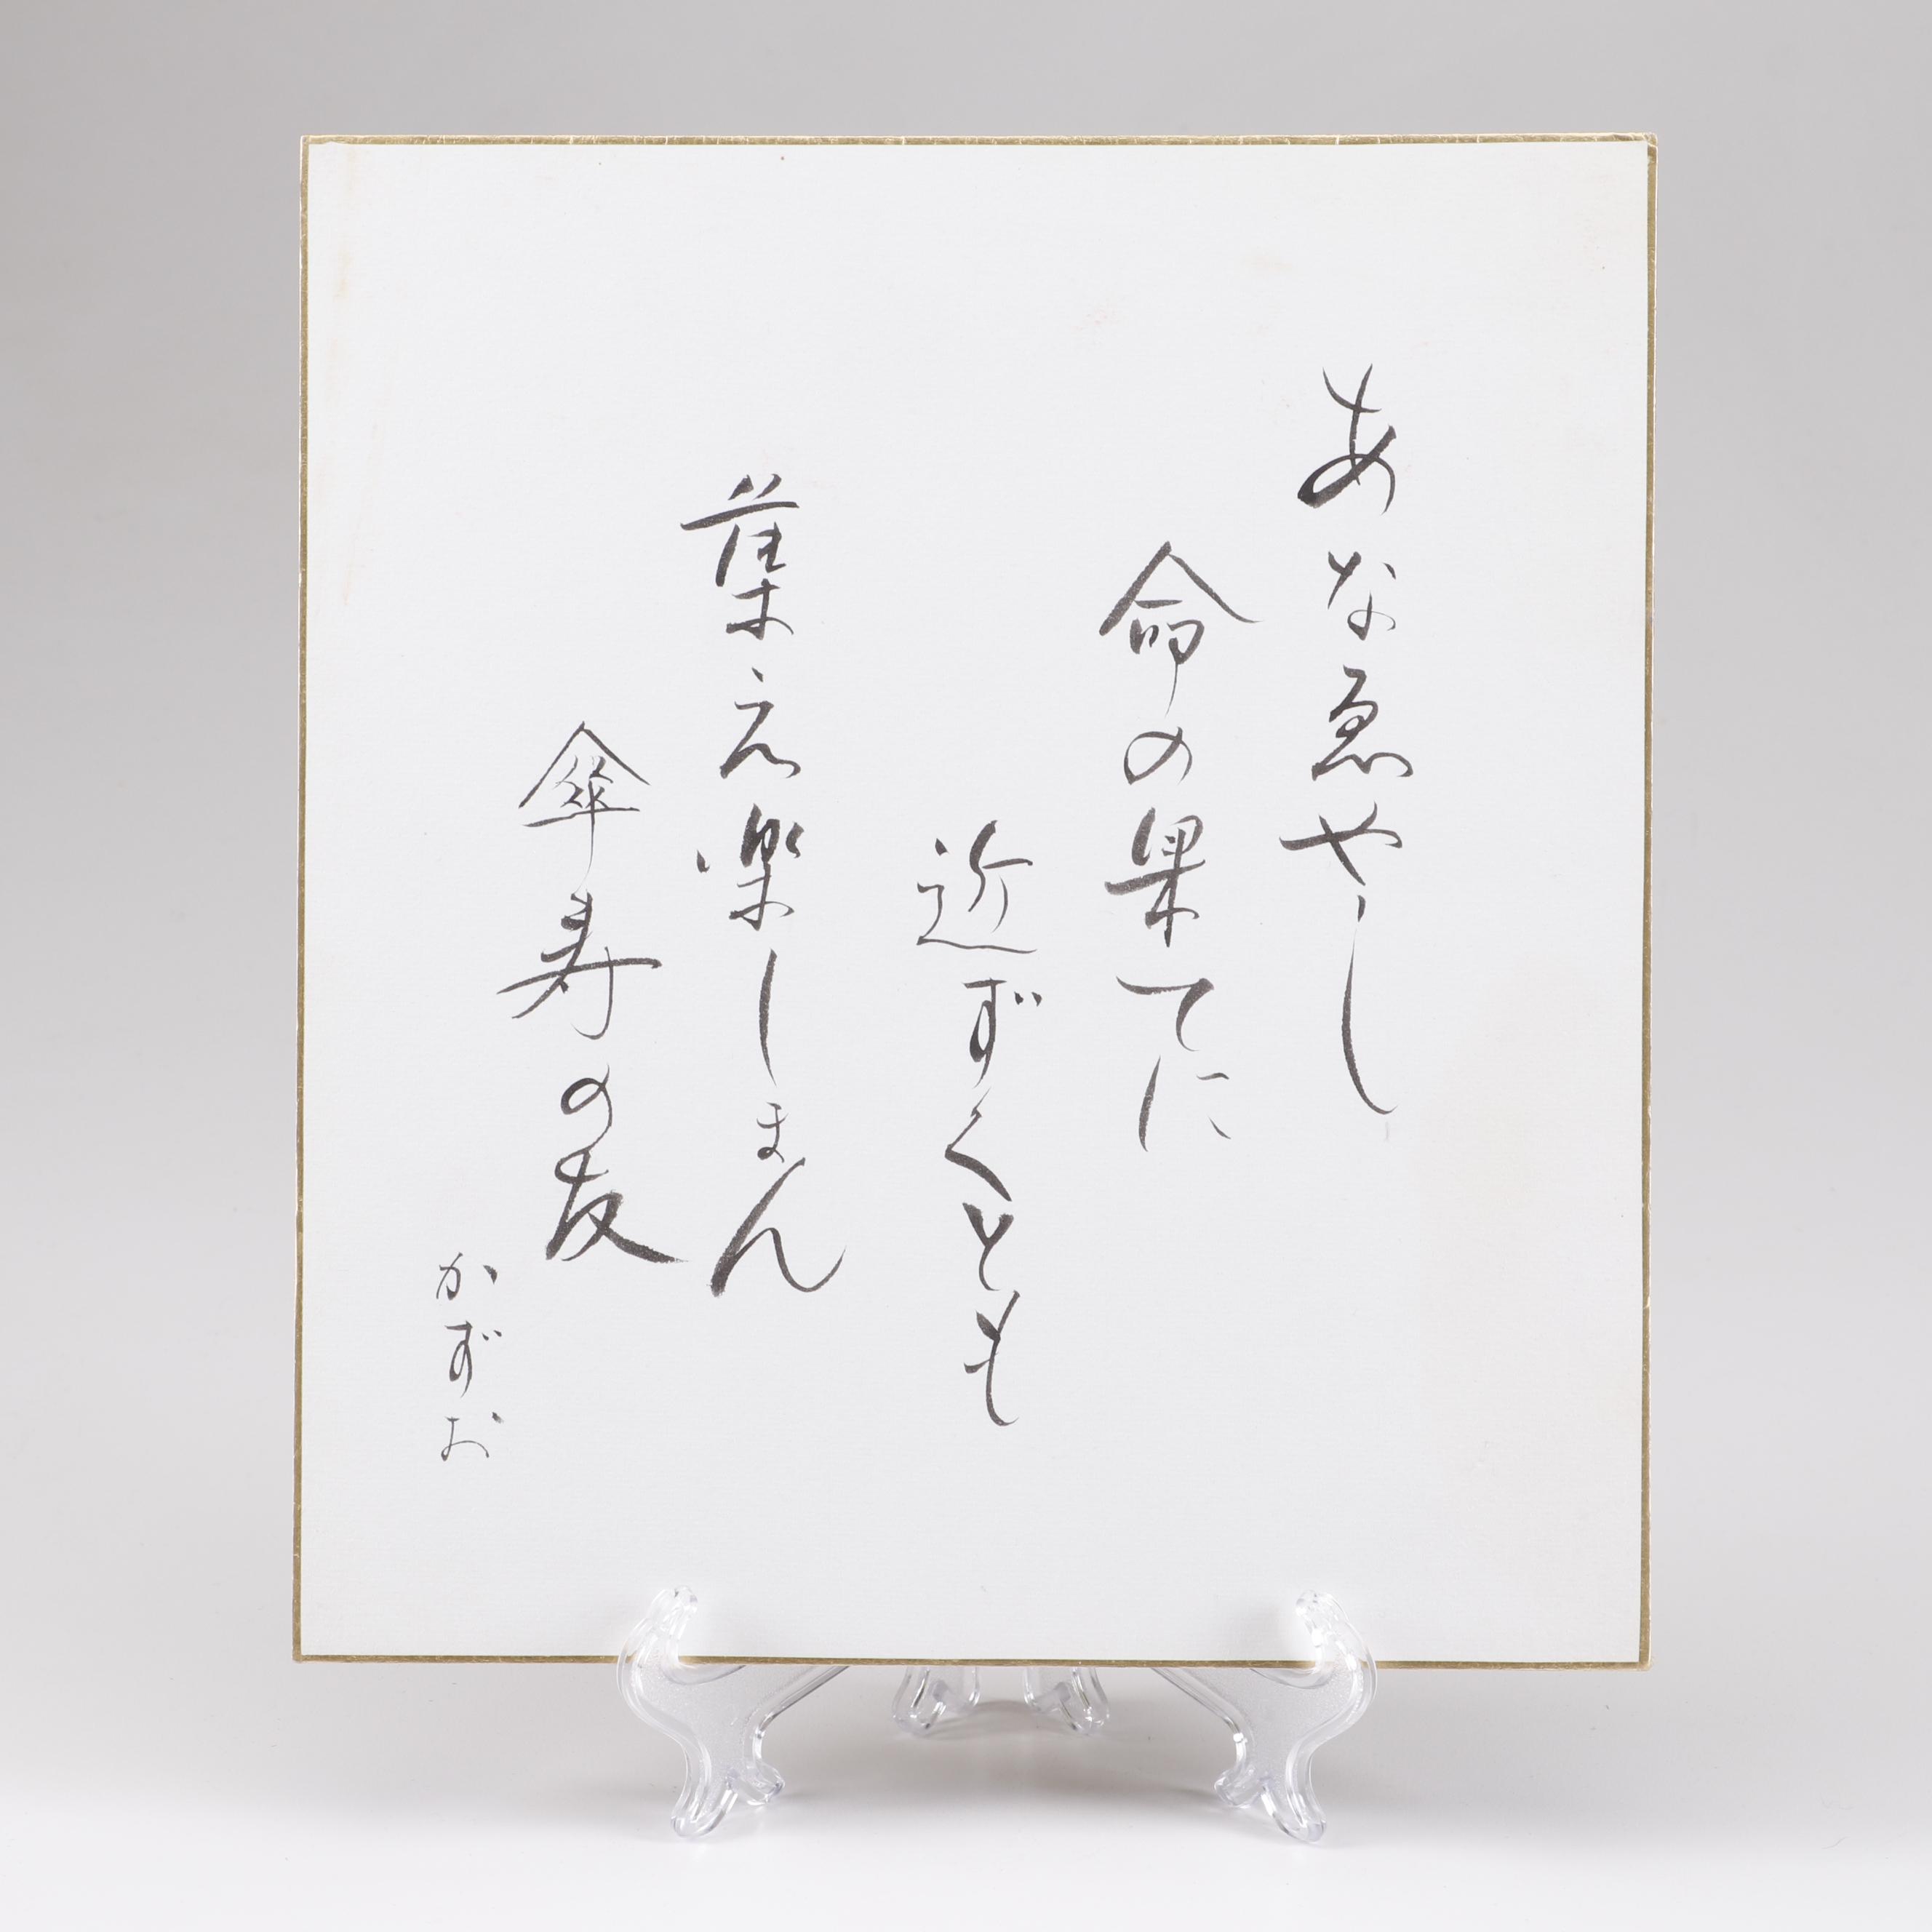 あな愚やし
命の果てに
近ずくとも
集え楽しまん
傘寿の友
かずお